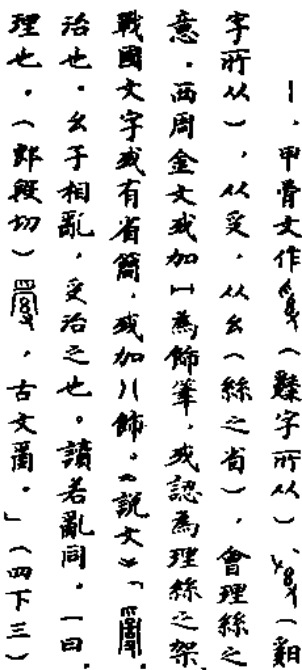 丨，甲骨文作（字所从）、（
字所从），从𠬪，从幺（絲之省），會理絲之
意。西周金文或加工為飾筆，或認為理絲之架。
戰國文字或有省簡，或加八飾。《說文》「𤔔
治也。幺子相亂，𠬪治之也。讀若亂同。一曰
理也。（郎段切），古文𤔔。」（四下三）